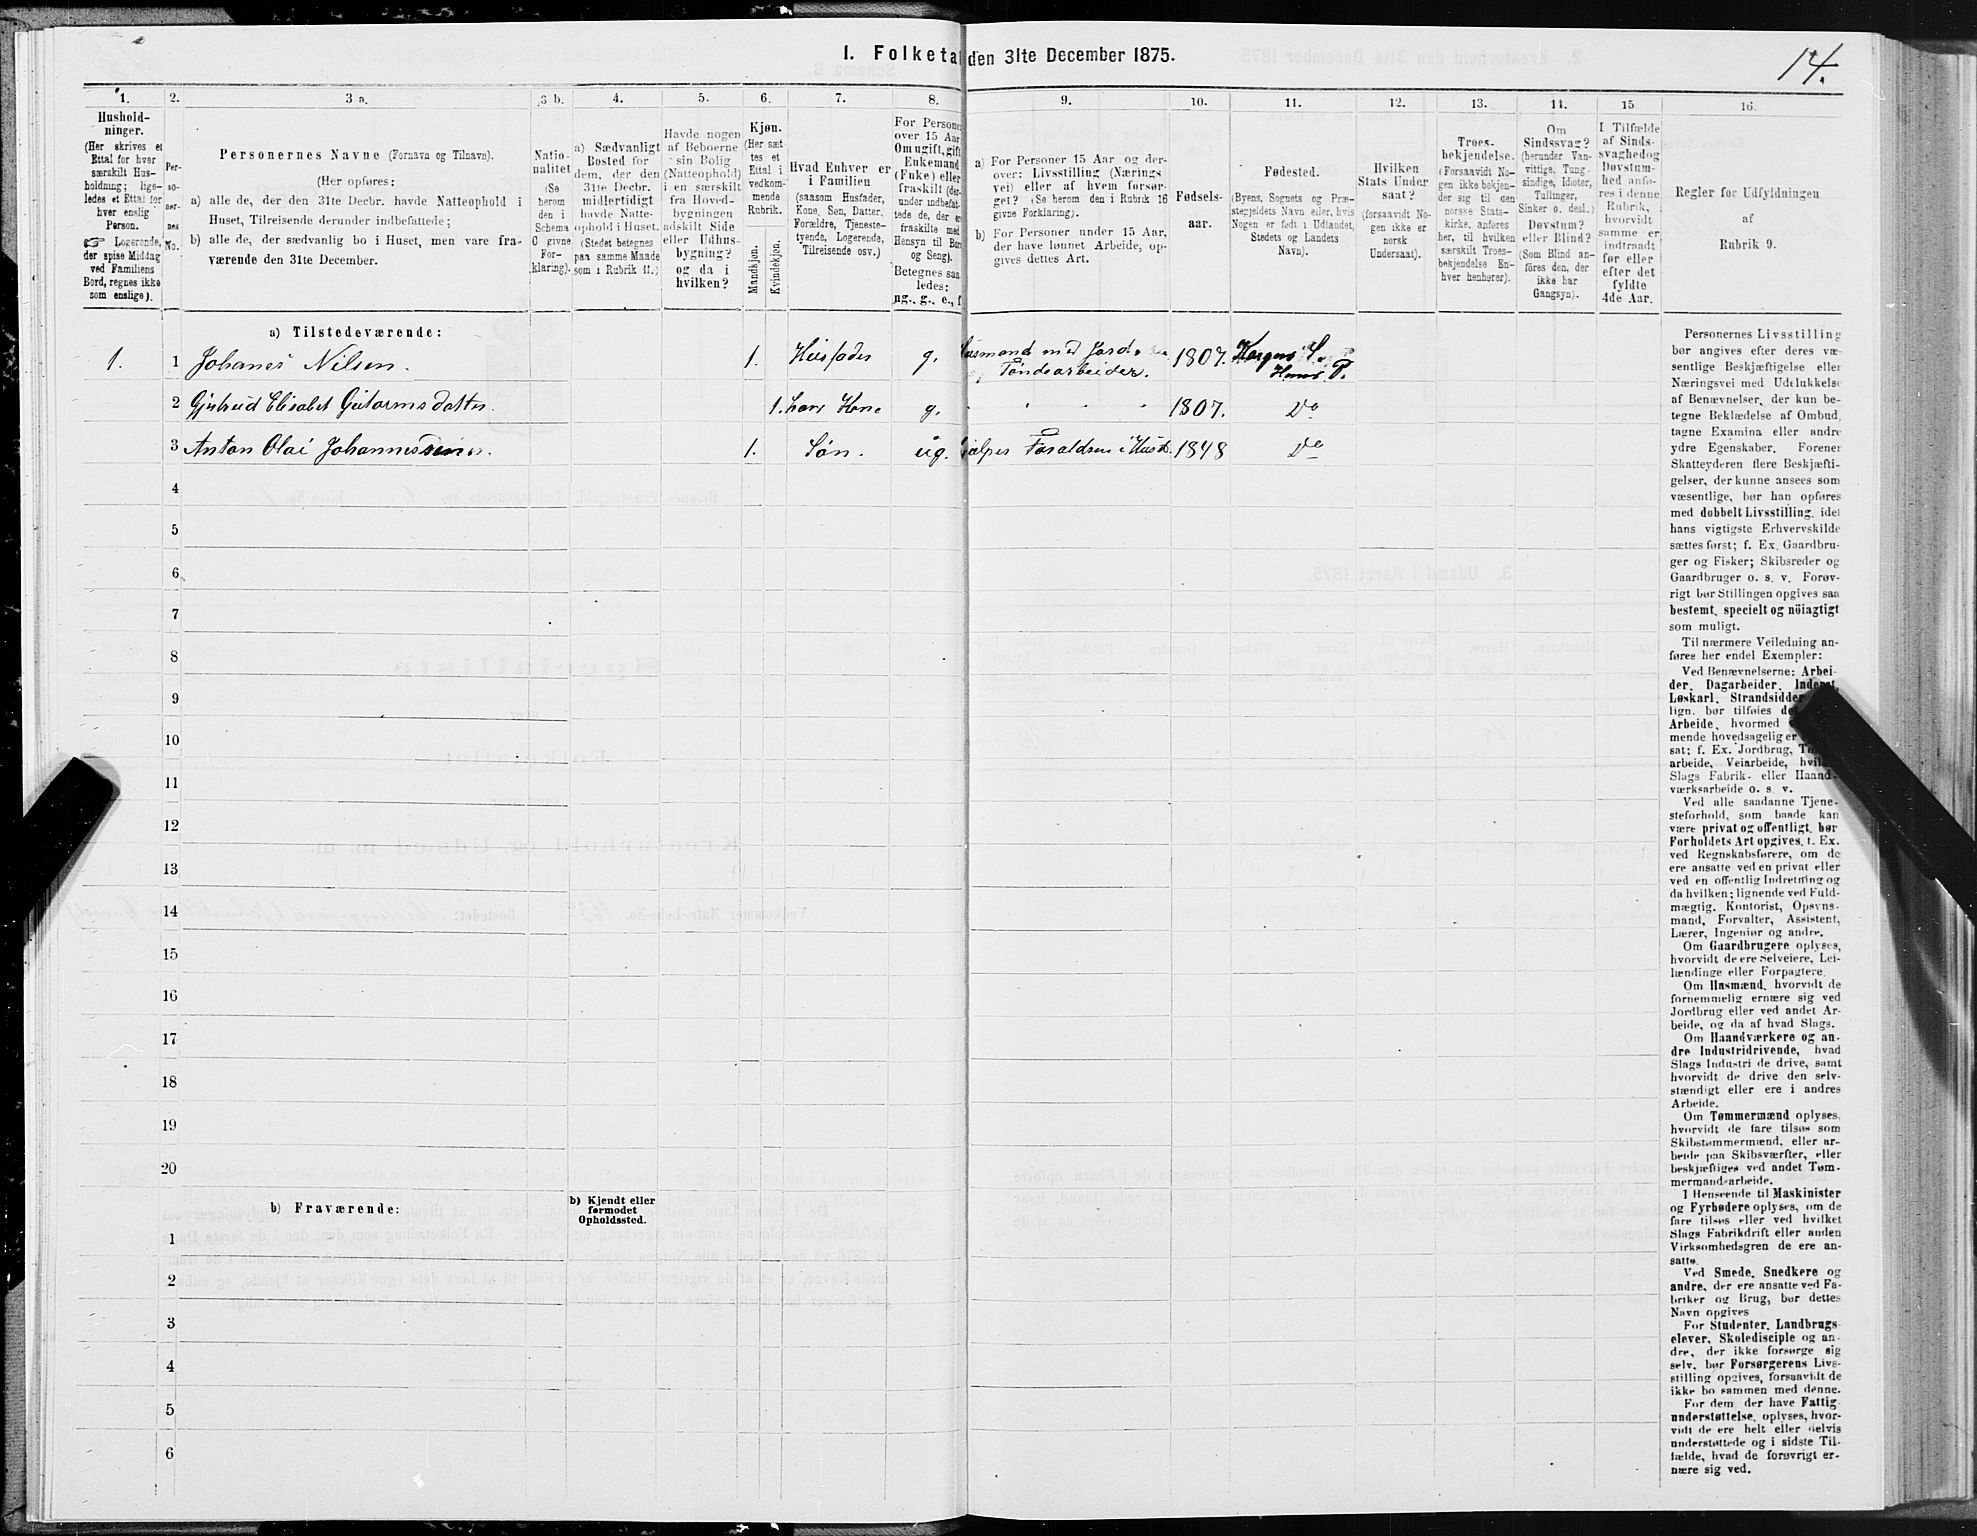 14.
I. Folketal den 31te December 1875.
1.
Hushold-
ninger.
(Her skrives et
Ettal for hver
særskilt Hus-
holdning; lige-
ledes et Ettal for
hver enslig
Person.
☞ Logerende,
der spise Middag
ved Familiens
Bord, regnes ikke
som enslige).
2.
Per-
so-
ner-
nes
No.
3 a.
Personernes Navne (Fornavn og Tilnavn).
(Her opføres:
a) alle de, der den 31te Decbr. havde Natteophold i
Huset, Tilreisende derunder indbefattede;
b) alle de, der sædvanlig bo i Huset, men vare fra-
værende den 31te December.
3 b.
Natio-
nalitet
(Se
herom
den i
Schema
C givne
For-
klaring).
4.
a) Sædvanligt
Bosted for
dem, der den
31te Decbr.
midlertidigt
havde Natte-
ophold i Huset.
(Stedet betegnes
paa samme Maade
som i Rubrik 11.)
5.
Havde nogen
af Beboerne
sin Bolig
(Natteophold)
i en særskilt
fra Hoved-
bygningen
adskilt Side
eller Udhus-
bygning?
og da i
hvilken?
6.
Kjøn.
(Her sæt
tes et
Ettal i
vedkom-
mende
Rubrik.
Mandkjøn.
Kvindekjøn.
7.
Hvad Enhver er
i Familien
(saasom Husfader,
Kone, Søn, Datter,
Forældre, Tjeneste-
tyende, Logerende,
Tilreisende osv.)
8.
For Persone
over 15 Aar
Om ugift, gift
Enkemand
(Enke) eller
fraskilt (der-
under indbefat-
tede de, der e
fraskilte med
Hensyn til Bor
og Seng).
Betegnes saa
ledes:
ug., g., e., f
9.
a) For Personer 15 Aar og der-
over: Livsstilling (Nærings
vei) eller af hvem forsør-
get? (Se herom den i Rubrik 16
givne Forklaring).
b) For Personer under 15 Aar,
der have lønnet Arbeide, op-
gives dettes Art.
10.
Fødsels-
aar.
11.
Fødested.
(Byens, Sognets og Præ-
stegjeldets Navn eller, hvis
Nogen er født i Udlandet,
Stedets og Landets
Navn).
12.
Hvilken
Stats Under
saat?
(forsaavidt No-
gen ikke er
norsk
Undersaat).
13.
Troes-
bekjendelse.
(Forsaavidt No-
gen ikke bekjen-
der sig til den
norske Stats-
kirke, anføres
her, til hvilken
særskilt Troes-
bekjendelse En-
hver henhører).
14.
Om
Sindssvag?
(herunder Van-
vittige, Tung-
sindige, Idioter,
Tullinger,
Sinker o. desl.)
Døvstum?
eller Blind?
(Som Blind an-
føres den, der
ikke har
Gangsyn).
15
I Tilfælde
af Sinds-
svaghed og
Døvstum-
hed anfø-
res i denne
Rubrik,
hvorvidt
samme er
indtraadt
før eller
efter det
fyldte
4de Aar.
16.
Regler for Udfyldningen
af
Rubrik 9.
a) Tilstedeværende:
1. 1 Johanes Nilsen. 1. Husfader g. Husmand med Jord. 1807. Korgens S.
Tøndearbeider. Hemes P.
2 Gjertrud Elisabet Guttormsdatter 1. hans Kone g. " " " " 1807. Do
3 Anton Olai Johannessen 1. Søn. ug. hjelper Forældren i Huset. 1848 Do
4
5
6
7
8
9
10
11
12
13
14
15
16
17
18
19
20
b) Fraværende:
b) Kjendt eller
formodet
Opholdssted.
1
2
3
4
5
6
Personernes Livsstilling
bør angives efter deres væ-
sentlige Beskjæftigelse eller
Næringsvei med Udelukkelse
af Benævnelser, der kun be-
tegne Beklædelse af Ombud,
tagne Examina eller andre
ydre Egenskaber. Forener
Skatteyderen flere Beskjæfti-
gelser, der kunne ansees som
væsentlige, bør han opføres
med dobbelt Livsstilling, idet
hans vigtigste Erhvervskilde
sættes først; f. Ex. Gaardbru-
ger og Fisker; Skibsreder og
Gaardbruger o. s. v. Forøv-
rigt bør Stillingen opgives saa
bestemt, specielt og nøiagtigt
som muligt.
Til nærmere Veiledning an-
føres her endel Exempler:
Ved Benævnelserne: Arbei-
der, Dagarbeider, Inderst,
Løskarl, Strandsidder
lign. bør tilføies
Arbeide, hvormed
mende hovedsagelig er
sat; f. Ex. Jordbrug,
arbeide, Veiarbeide,
Slags Fabrik- eller Haand-
værksarbeide o. s. v.
Ved alle saadanne Tjene-
steforhold, som baade kan
være privat og offentligt, bør
Forholdets Art opgives, f. Ex.
ved Regnskabsførere, om de
ere ansatte ved en privat eller
ved en offentlig Indretning og
da hvilken; lignende ved Fuld-
mægtig, Kontorist, Opsyns-
mand, Forvalter, Assistent,
Lærer, Ingeniør og andre.
Om Gaardbrugere oplyses,
hvorvidt de ere Selveiere, Lei-
lændinge eller Forpagtere.
Om Husmænd, hvorvidt de
fornemmelig ernære sig ved
Jordbrug eller ved andet Ar-
beide, og da af hvad Slags.
Om Haandværkere og an-
dre Industridrivende, hvad
Slags Industri de drive, samt
hvorvidt de drive den selv-
stændigt eller ere i andres
Arbeide.
Om Tømmermænd oplyses,
hvorvidt de fare tilsøs som
Skibstømmermænd, eller ar-
beide paa Skibsværfter, eller
beskjæftiges ved andet Tøm-
mermandsarbeide.
I Henseende til Maskinister
og Fyrbødere oplyses, om de
fare tilsøs eller ved hvilket
Slags Fabrikdrift eller anden
Virksomhedsgren de ere an-
satte.
Ved Smede, Snedkere og
andre, der ere ansatte ved Fa-
briker og Brug, bør dettes
Navn opgives
For Studenter, Landbrugs-
elever, Skoledisciple og an-
dre, der ikke forsørge sig
selv, bør Forsørgerens Livs-
stilling opgives, forsaavidt de
ikke bo sammen med denne.
For dem der have Fattig-
understøttelse, oplyses, hvor-
vidt de ere helt eller delvis
understøttede og i sidste Til-
fælde, hvad de forøvrigt er-
nære sig ved.